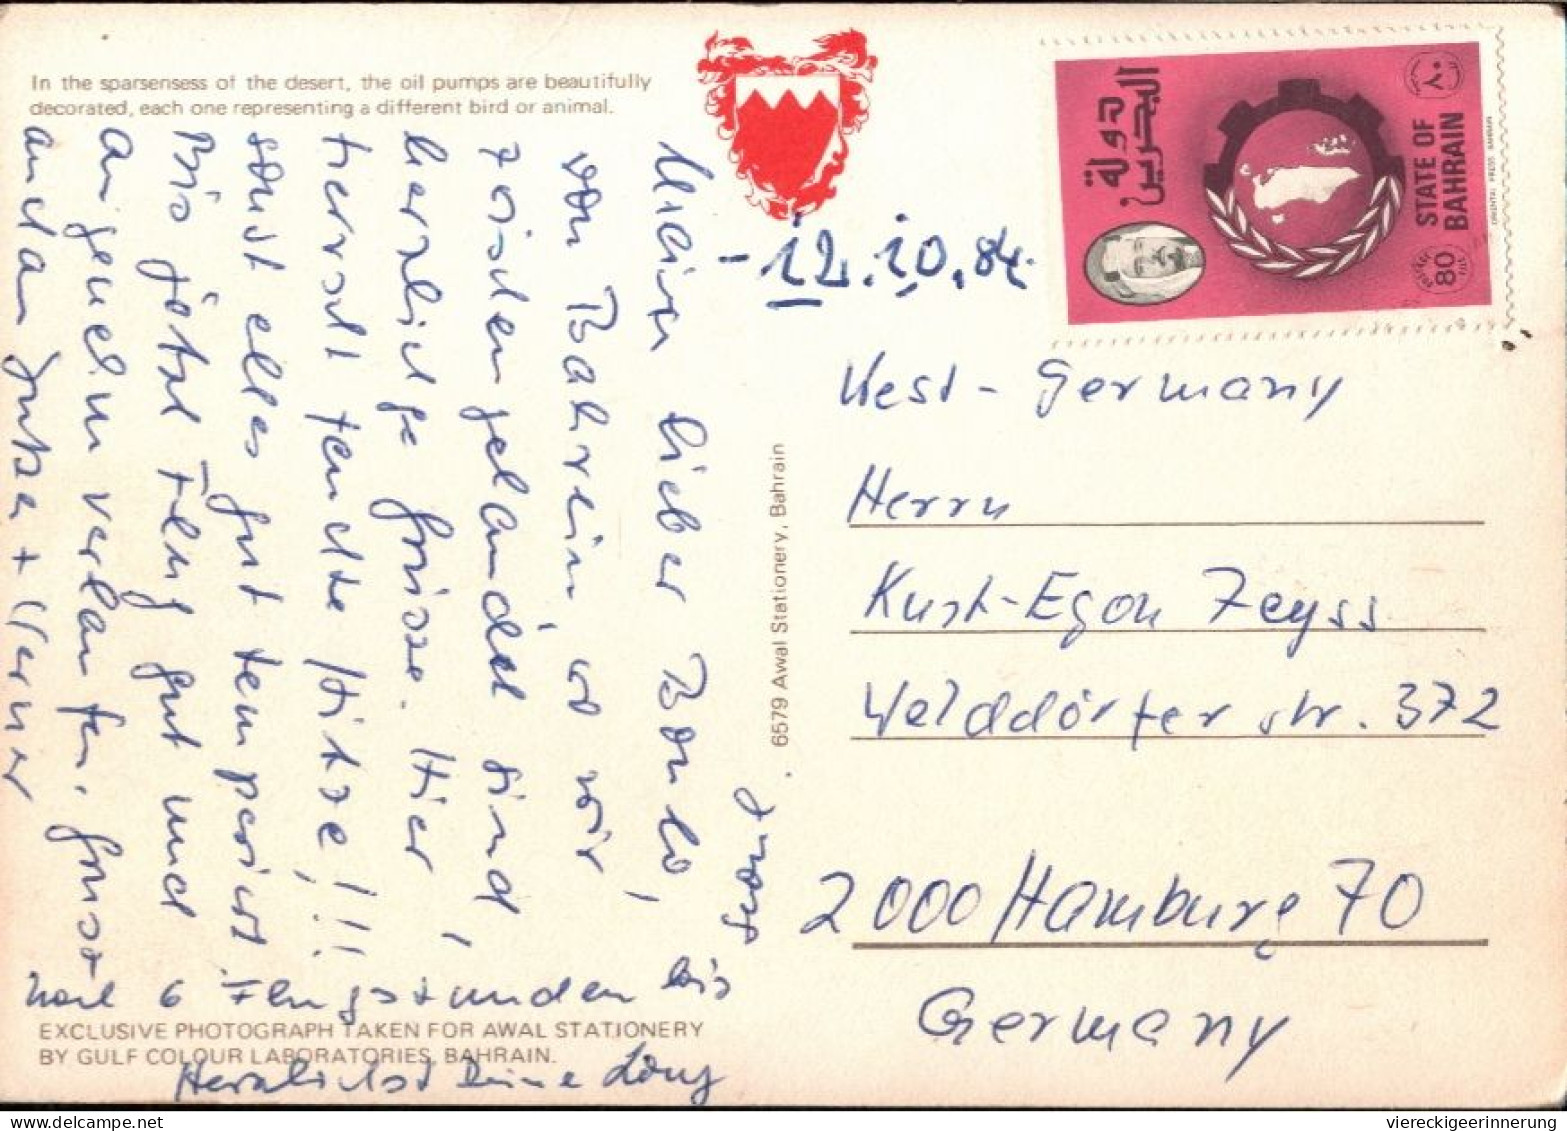 In the sparsensess of the desert, the oil pumps are beautifully
decorated, each one representing a different bird or animal.
دولة
البحرين
٨٠
STATE OF
BAHRAIN
80
ORIENTAL PRESS BAHRAIN
- 12.10.84.
Mein lieber Bonbo,
von Bahrein, wo wir
zwischengelandet sind,
herzliche Grüsse. Hier,
herrscht feuchte Hitze!!!
sonst alles gut temperiert
Bis jetzt Flug gut und
angenehm verlaufen. Grüsse
an dan + Werner
noch 6 Flugstunden bis
Herzlichst Deine
EXCLUSIVE PHOTOGRAPH TAKEN FOR AWAL STATIONERY
BY GULF COLOUR LABORATORIES, BAHRAIN.
6579 Awal Stationery, Bahrain
West-Germany
Herrn
Kurt-Egon Zeyss
Welddörfer str. 372
2000 Hamburg 70
Germany
viereckigeerinnerung